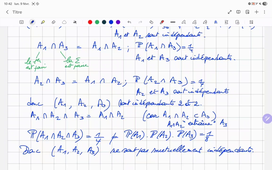 A₁ et A₂ sont indépendants.
A₁ ∩ A₃ = A₁ ∩ A₂ ; P(A₁ ∩ A₃) = 1/4
A₁ et A₃ sont indépendants.
A₂ ∩ A₃ = A₁ ∩ A₂ ; P(A₂ ∩ A₃) = 1/4
A₂ et A₃ sont indépendants
donc (A₁, A₂, A₃) sont indépendants 2 à 2.
A₁ ∩ A₂ ∩ A₃ = A₁ ∩ A₂ (car A₁ ∩ A₂ ⊂ A₃)
P(A₁ ∩ A₂ ∩ A₃) = 1/4 ≠ P(A₁). P(A₂). P(A₃) = 1/8
Donc (A₁, A₂, A₃) ne sont pas mutuellement indépendants.